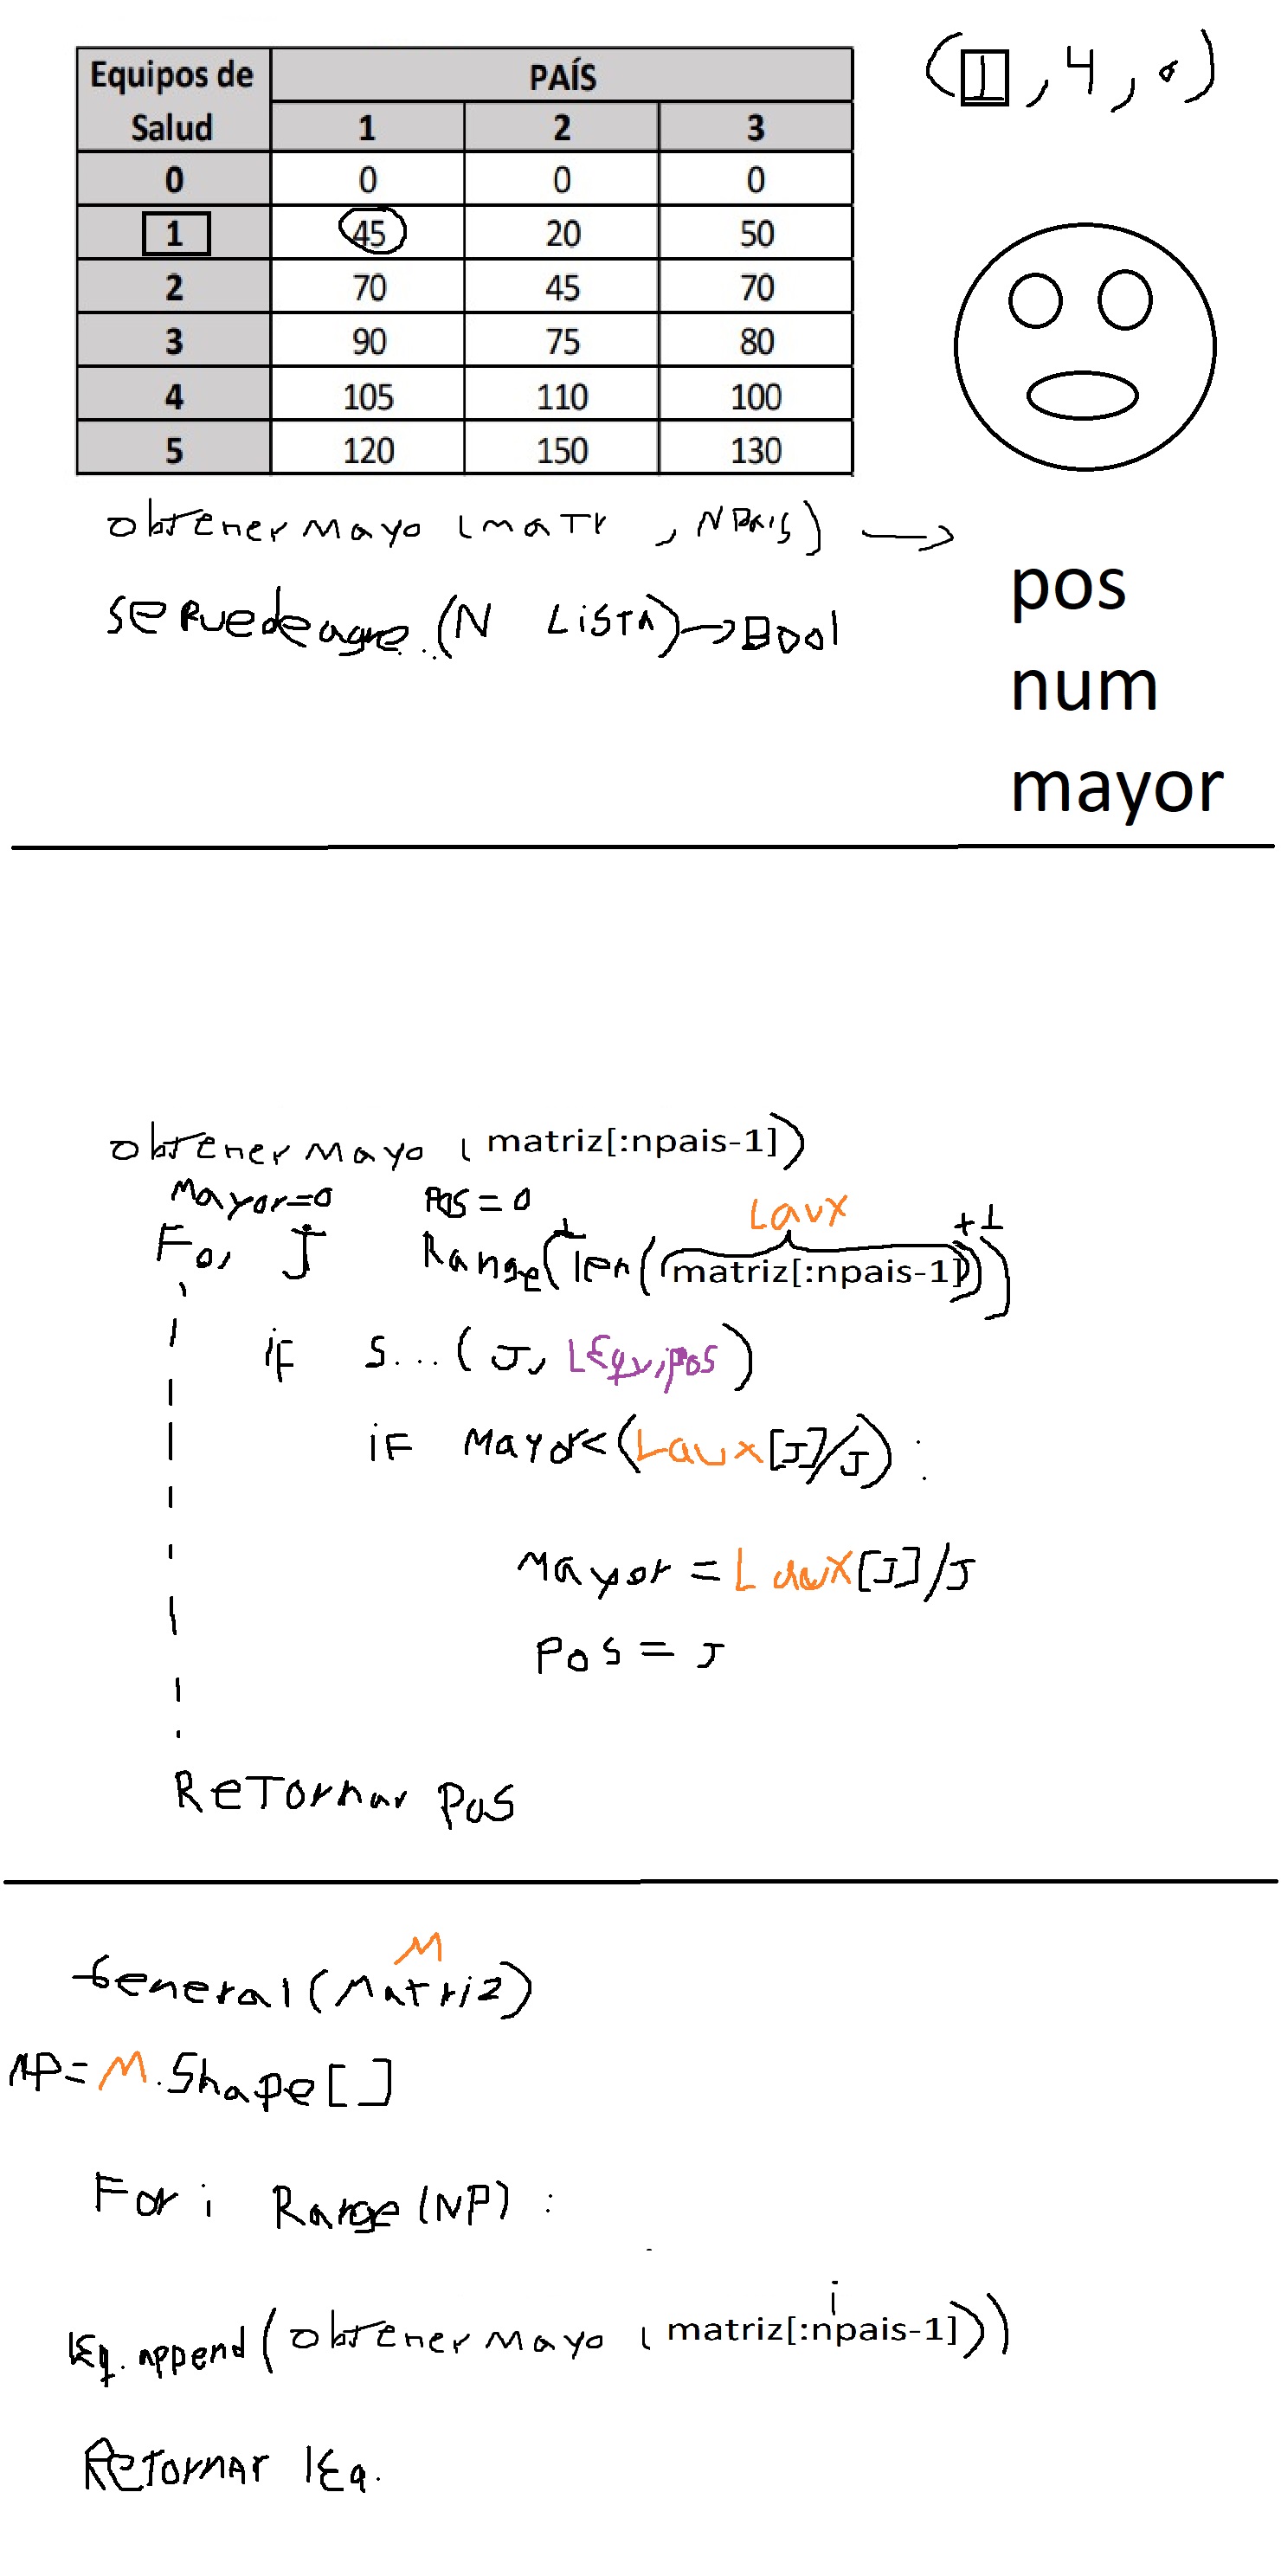 Equipos de Salud PAÍS
1 2 3
0 0 0 0
1 45 20 50
2 70 45 70
3 90 75 80
4 105 110 100
5 120 150 130
(1, 4, 0)
obtener Mayo (matr, NPais) →
pos
num
mayor
se puede agre..(N Lista) → Bool
obtener Mayo (matriz[:npais-1])
Mayor=0 Pos=0
Laux
For J Range(1 len((matriz[:npais-1]))+1)
if S...(J, LEquipos)
if Mayor<(Laux[J]/J):
Mayor = Laux[J]/J
Pos = J
Retornar Pos
M
General(Matriz)
NP=M.Shape[]
For i Range(NP):
i
lEq.append(obtener Mayo (matriz[:npais-1]))
Retornar lEq.